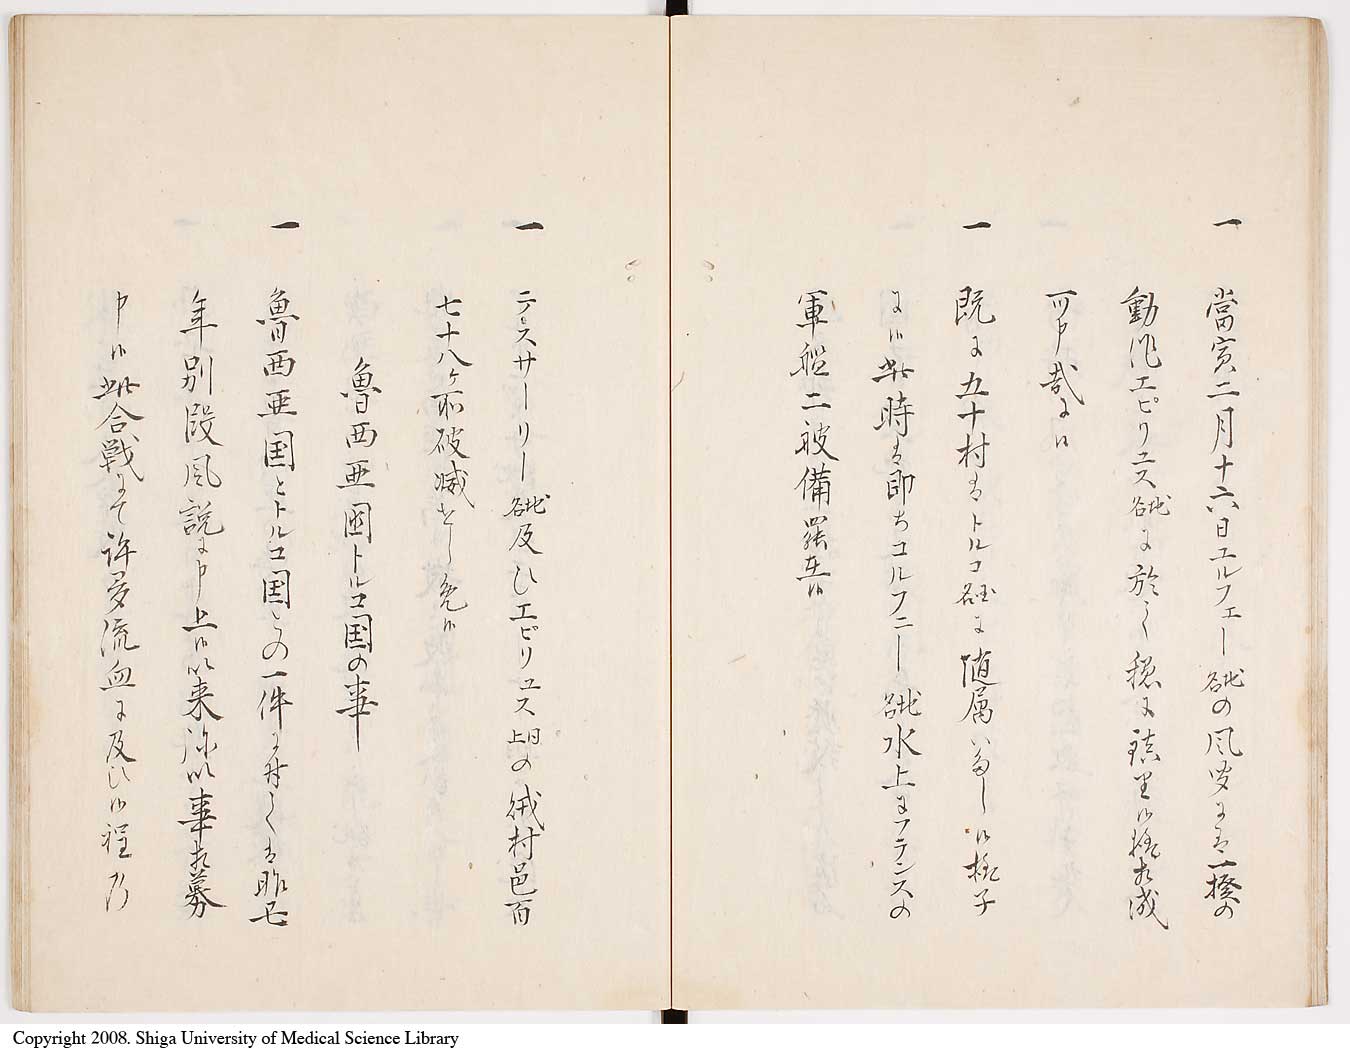 一 當寅二月十六日ユルフェー地名の風聞にては一揆の
動作エピリユス地名に於て穏に鎮り候様相成
可申哉に候
一 既に五十村はトルコ国名に随属いたし候様子
に候此時は即ちコルフニー地名水上にフランスの
軍艦二艘備羅在候
一 テスサーリー地名及ひエピリユス同上の城村邑百
七十八ケ所破滅せし免候
魯西亜国トルコ国の事
一 魯西亜国とトルコ国との一件に付ては昨丑
年別段風説に申上候以来弥以事相募
申候此合戦にて許多流血に及ひ候程の
Copyright 2008. Shiga University of Medical Science Library